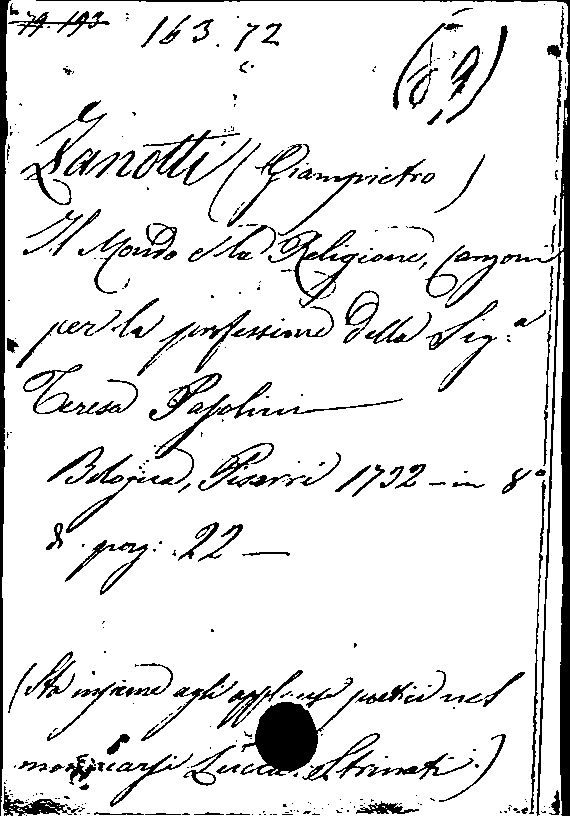 79. 193
163.72
(d, 9)
Zanotti (Giampietro)
Il Mondo e la Religione, Canzoni
per la professione della Sig.ª
Teresa Pasolini
Bologna, Pisarri 1732 - in 8°
di pag: 22 —
(Sta insieme agli applausi poetici nel
monacarsi Lucia Strinati.)